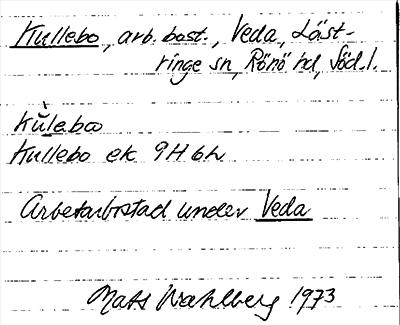 Kullebo, arb.bost., Veda, Läst-
ringe sn, Rönö hd, Söd.l.
kŭ̀lebω
Kullebo ek 9H 6h
Arbetarbostad under Veda
Mats Wahlberg 1973